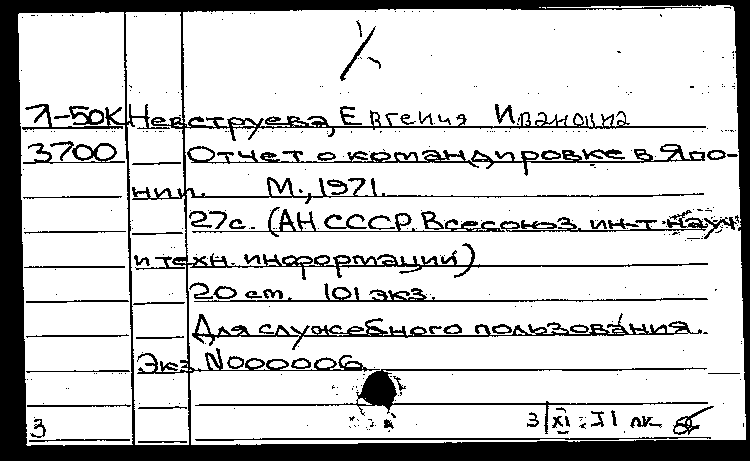 Л-50К Невструева, Евгения Ивановна
3700 Отчет о командировке в Япо-
нии. М., 1971.
27с. (АН СССР. Всесоюз. ин-т науч.
и техн. информации)
20 см. 101 экз.
Для служебного пользования.
Экз. N000006.
3 3/XI-71 лк